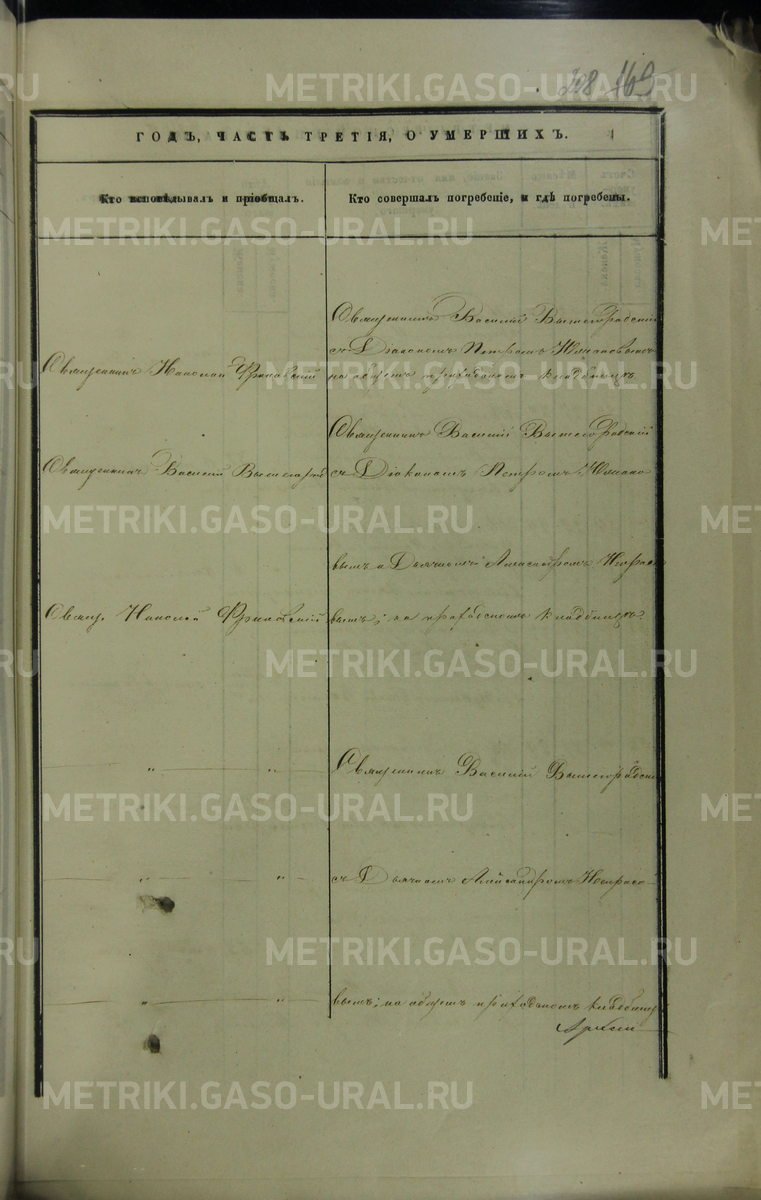 208 169
ГОДЪ, ЧАСТЬ ТРЕТІЯ, О УМЕРШИХЪ.
Кто исповѣдывалъ и пріобщалъ.
Кто совершалъ погребеніе, и гдѣ погребены.
Священникъ Василій Вышегородскій
съ Діакономъ Петромъ
Священникъ
на общемъ приходскомъ кладбищѣ.
Священникъ Василій Вышегородскій
Священникъ Василій Вышегород
съ Діакономъ Петромъ
вымъ и Дьячкомъ Александромъ Некрасо
Свящ.
вымъ; на приходскомъ кладбищѣ.
Священникъ Василій Вышегородскій
съ Дьячкомъ Александромъ Некрасо
вымъ; на общемъ приходскомъ кладбищѣ
METRIKI.GASO-URAL.RU